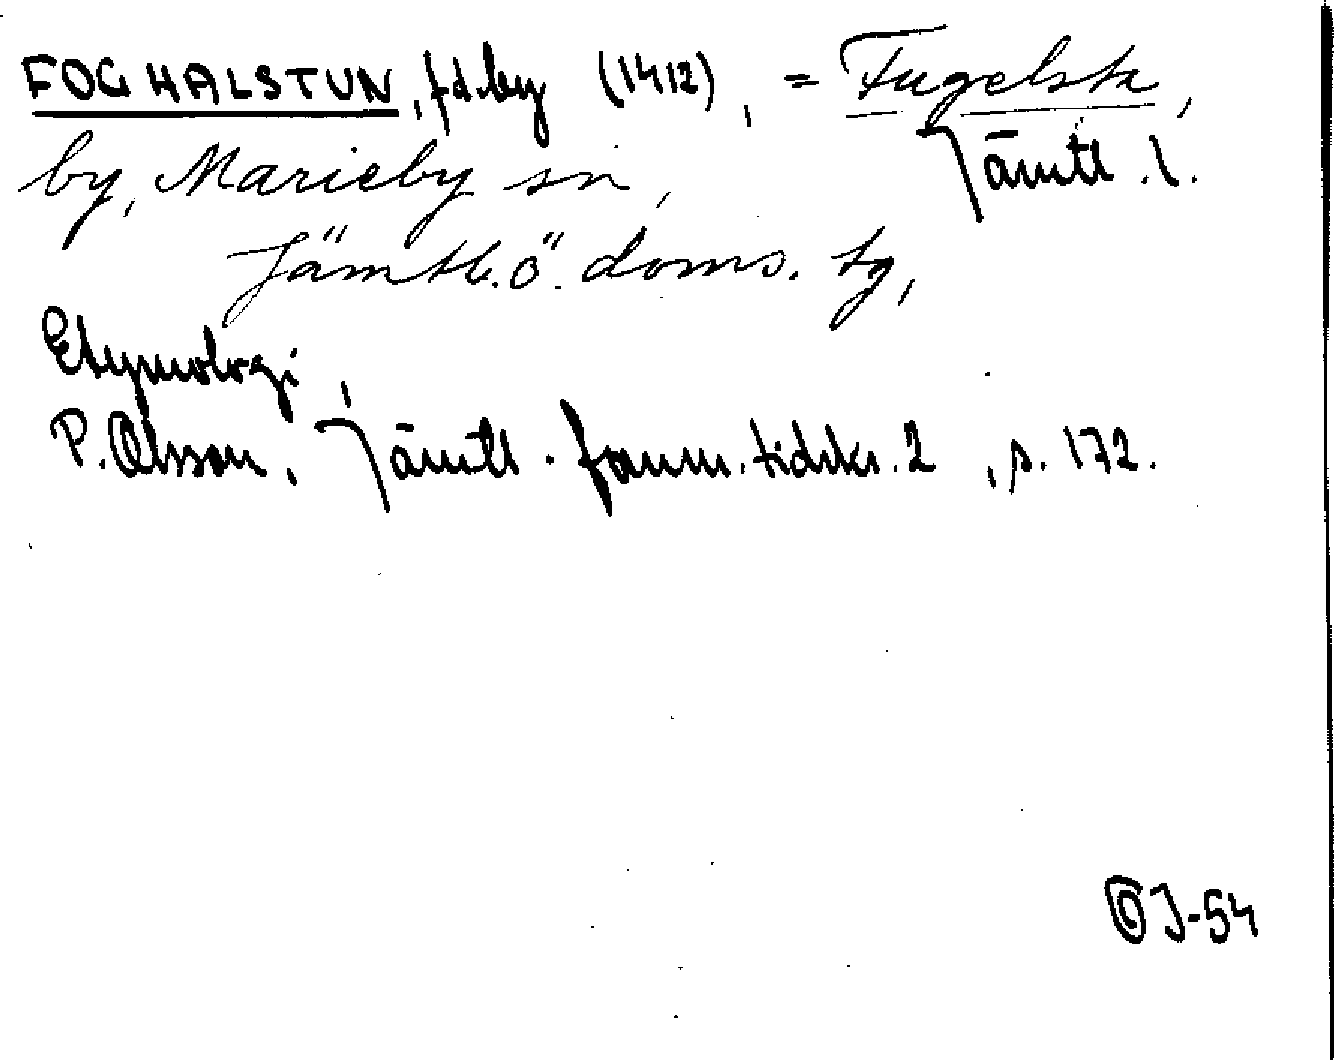 FOGHALSTUN, fd. by (1412), = Fugelsta,
Jämtl. l.
by, Marieby sn,
Jämtl. ö. doms. tg,
Etymologi,
P. Olsson, Jämtl. fornm. tidskr. 2, s. 172.
OJ-54